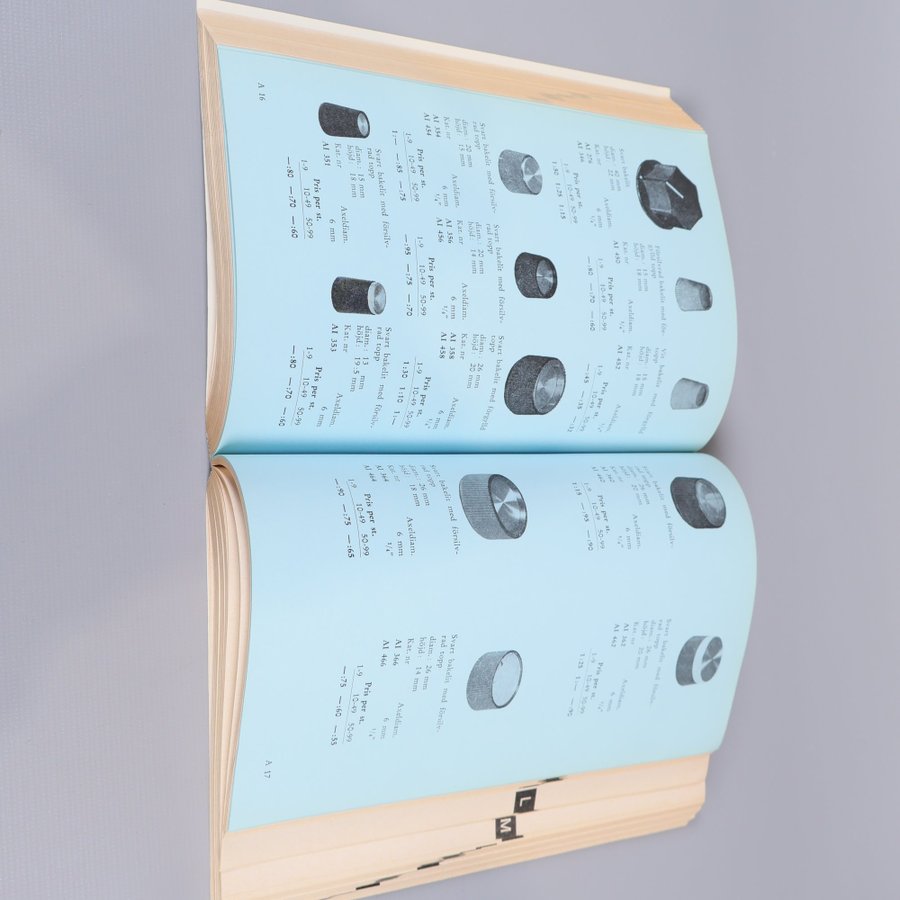 Svart bakelit
diam. 40 mm
höjd 22 mm
Kat. nr Axeldiam.
6 mm
¼"
Pris per st.
1-9 10-49 50-99
1:50 1:25 1:15
diam. : 15 mm
höjd : 18 mm
Kat. nr Axeldiam.
AI 450 ¼"
Pris per st.
1-9 10-49 50-99
—:80 —:70 —:60
Vit bakelit med förgylld
topp
diam. : 15 mm
höjd : 18 mm
Kat. nr Axeldiam.
AI 452 ¼"
Pris per st.
1-9 10-49 50-99
Svart bakelit med försilv-
rad topp
diam. 20 mm
höjd : 15 mm
Kat. nr Axeldiam.
AI 354 6 mm
AI 454 ¼"
Pris per st.
1-9 10-49 50-99
1:— —:85 —:75
Svart bakelit med försilv-
rad topp
diam. : 20 mm
höjd : 14 mm
Kat. nr Axeldiam.
AI 356 6 mm
AI 456 ¼"
Pris per st.
1-9 10-49 50-99
—:95 —:75 —:70
Svart bakelit med förgylld
topp
diam. : 26 mm
höjd : 20 mm
Kat. nr Axeldiam.
AI 358 6 mm
AI 458 ¼"
Pris per st.
1-9 10-49 50-99
1:30 1:10 1:—
Svart bakelit med försilv-
rad topp
diam. : 15 mm
höjd : 18 mm
Kat. nr Axeldiam.
AI 351 6 mm
Pris per st.
1-9 10-49 50-99
—:80 —:70 —:60
Svart bakelit med försilv-
rad topp
diam. : 13 mm
höjd : 19.5 mm
Kat. nr Axeldiam.
AI 353 6 mm
Pris per st.
1-9 10-49 50-99
—:80 —:70 —:60
A 16
Kat. nr Axeldiam.
6 mm
¼"
Pris per st.
1-9 10-49 50-99
1:15 —:95 —:90
Svart bakelit med försilv-
rad topp
diam. : 26 mm
höjd : 20 mm
Kat. nr Axeldiam.
AI 362 6 mm
AI 462 ¼"
Pris per st.
1-9 10-49 50-99
1:25 1:— —:90
Svart bakelit med försilv-
rad topp
diam. : 26 mm
höjd : 18 mm
Kat. nr Axeldiam.
AI 364 6 mm
AI 464 ¼"
Pris per st.
1-9 10-49 50-99
—:90 —:75 —:65
Svart bakelit med försilv-
rad topp
diam. : 26 mm
höjd : 14 mm
Kat. nr Axeldiam.
AI 366 6 mm
AI 466 ¼"
Pris per st.
1-9 10-49 50-99
—:75 —:60 —:55
A 17
L
M